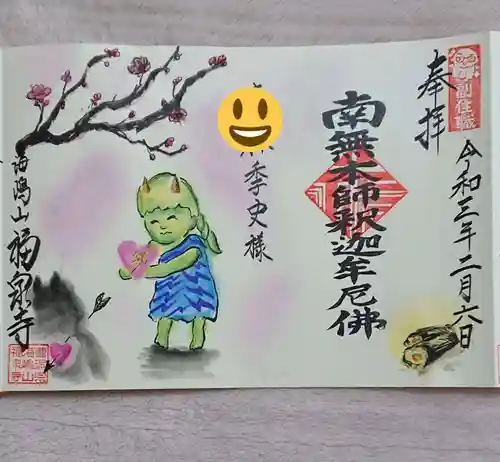 奉拝
副住職
令和三年二月六日
南無本師釈迦牟尼佛
季史様
海陽山 福泉寺